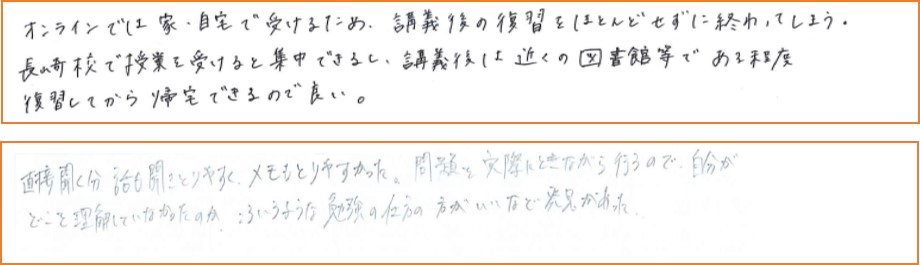 オンラインでは家・自宅で受けるため、講義後の復習をほとんどせずに終わってしまう。
長崎校で授業を受けると集中できるし、講義後は近くの図書館等である程度
復習してから帰宅できるので良い。
直接聞く分 話も聞きとりやすく、メモもとりやすかった。問題を実際にときながら行うので、自分が
どこを理解していなかったのか、こういうような勉強の仕方の方がいいなど発見があった。